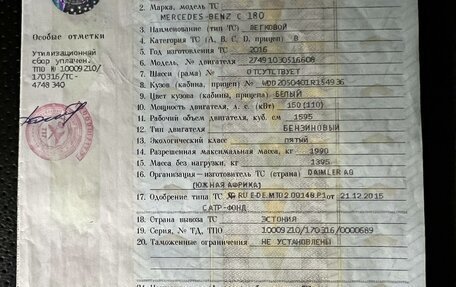 Особые отметки
Утилизационный
сбор уплачен.
ТПО № 10009210/
170316/ТС-
4748340
2. Марка, модель ТС
MERCEDES-BENZ C 180
3. Наименование (тип ТС) ЛЕГКОВОЙ
4. Категория ТС (А, В, С, D, прицеп) B
5. Год изготовления ТС 2016
6. Модель, № двигателя 27491030516608
7. Шасси (рама) № ОТСУТСТВУЕТ
8. Кузов (кабина, прицеп) № WDD2050401R154936
9. Цвет кузова (кабины, прицепа) БЕЛЫЙ
10. Мощность двигателя, л. с. (кВт) 150(110)
11. Рабочий объем двигателя, куб. см 1595
12. Тип двигателя БЕНЗИНОВЫЙ
13. Экологический класс ПЯТЫЙ
14. Разрешенная максимальная масса, кг 1990
15. Масса без нагрузки, кг 1395
16. Организация-изготовитель ТС (страна) DAIMLER AG
(ЮЖНАЯ АФРИКА)
17. Одобрение типа ТС № RU E-DE.MT02.00148.P1 от 21.12.2015
САТР-ФОНД
18. Страна вывоза ТС ЭСТОНИЯ
19. Серия, № ТД, ТПО 10009210/170316/0000689
20. Таможенные ограничения НЕ УСТАНОВЛЕНЫ